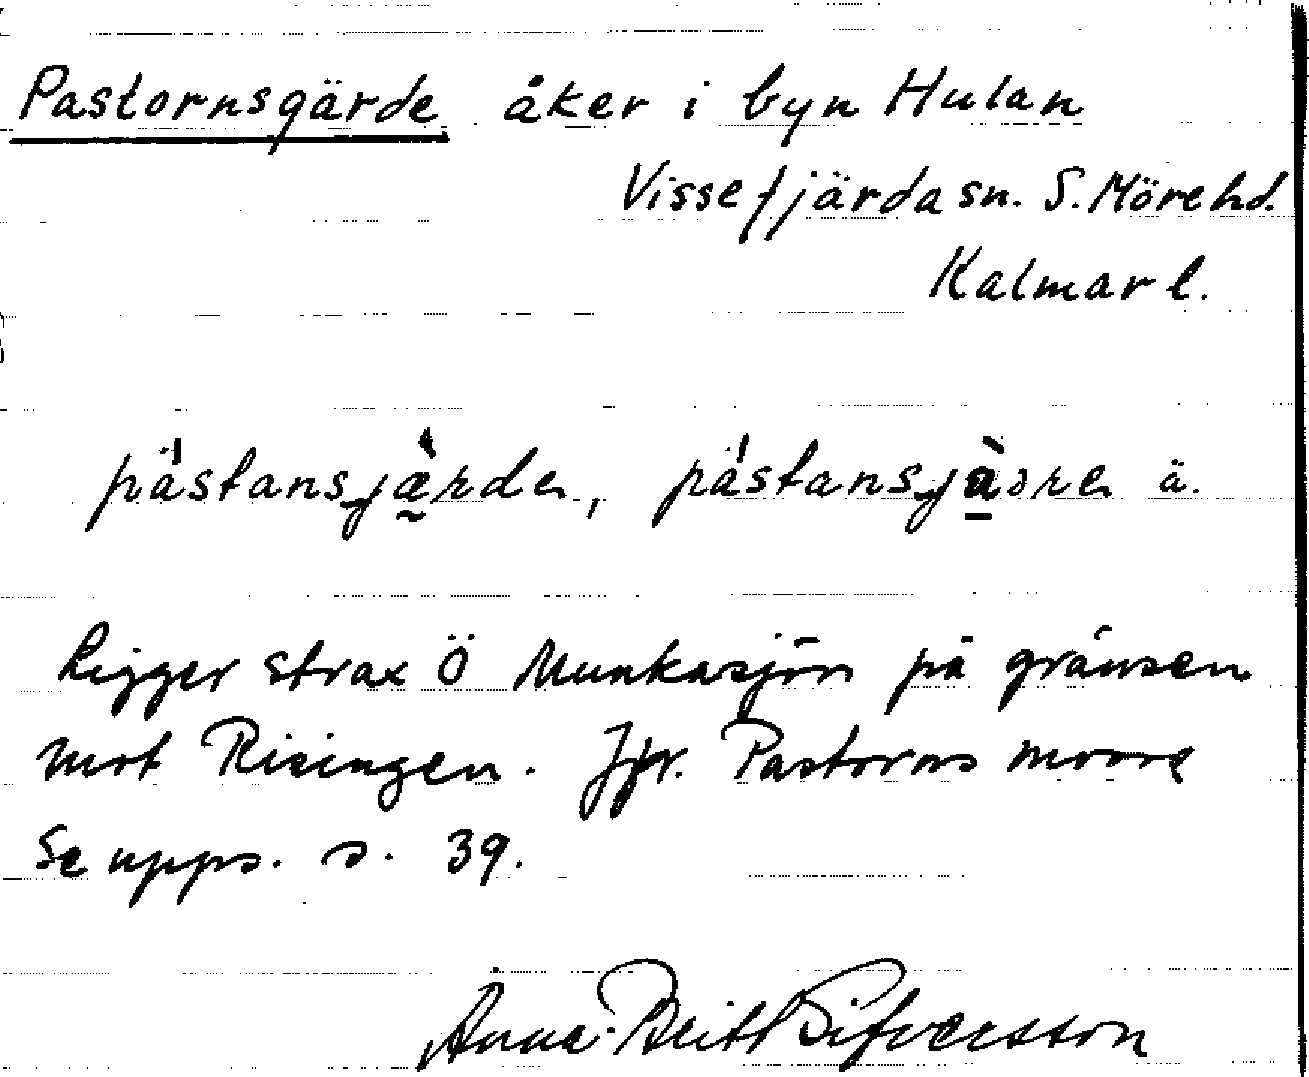 Pastornsgärde åker i byn Hulan
Vissefjärda sn. S. Möre hd.
Kalmar l.
pästansjärde, pästansjäɔre ä.
Ligger strax Ö Munkasjön på gränsen
mot Risingen. Jfr. Pastorns moore
Se upps. s. 39.
Anna-Britt Sifversson